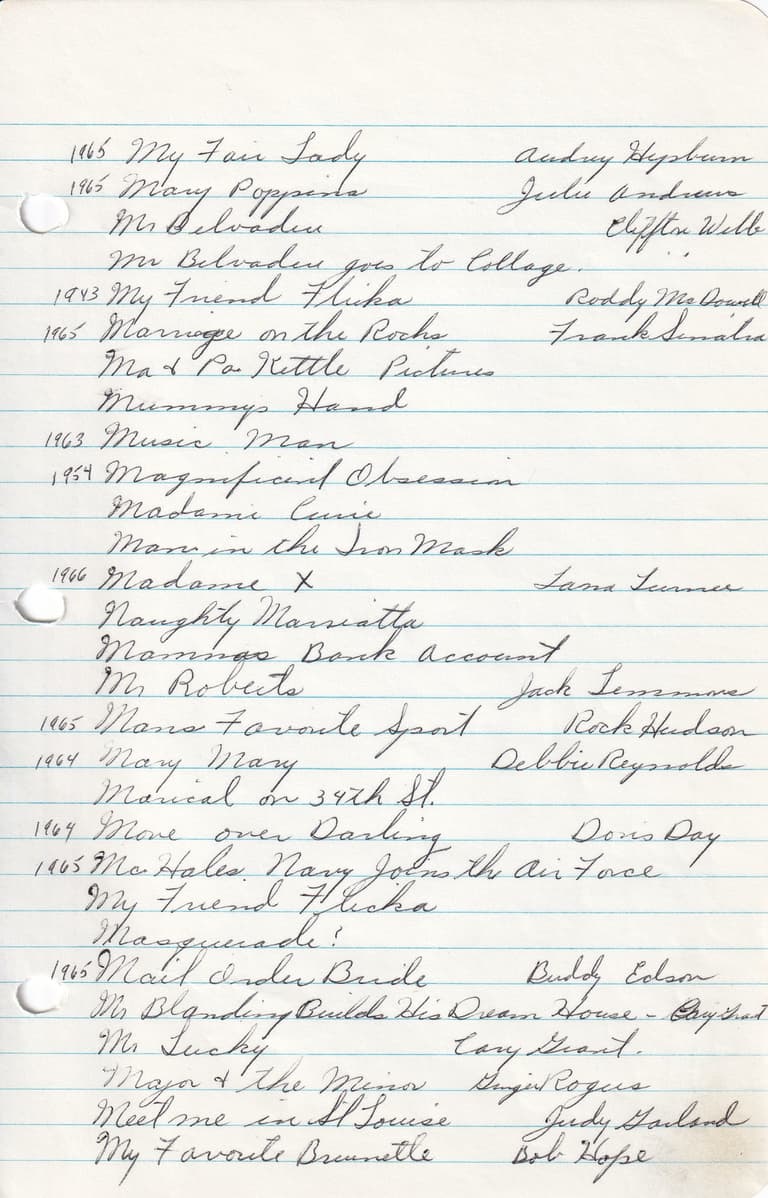 1965 My Fair Lady Audrey Hepburn
1965 Mary Poppins Julie Andrews
Mr Belvadere Cliffton Webb
Mr Belvadere goes to Collage.
1943 My Friend Flicka Roddy McDowell
1965 Marriage on the Rocks Frank Sinatra
Ma & Pa Kettle Pictures
Mummys Hand
1963 Music Man
1954 Magnificent Obsession
Madame Curie
Man in the Iron Mask
1966 Madame X Lana Turner
Naughty Marriatta
Mammas Bank Account
Mr Roberts Jack Lemmons
1965 Mans Favorite Sport Rock Hudson
1964 Mary Mary Debbie Reynolds
Marical on 34th St.
1964 Move over Darling Doris Day
1965 McHales Navy Joins the Air Force
My Friend Flicka
Masquerade?
1965 Mail Order Bride Buddy Edson
Mr Blanding Builds His Dream House - Cary Grant
Mr Lucky Cary Grant.
Major & the Minor Ginger Rogers
Meet me in St Louise Judy Garland
My Favorite Brunette Bob Hope